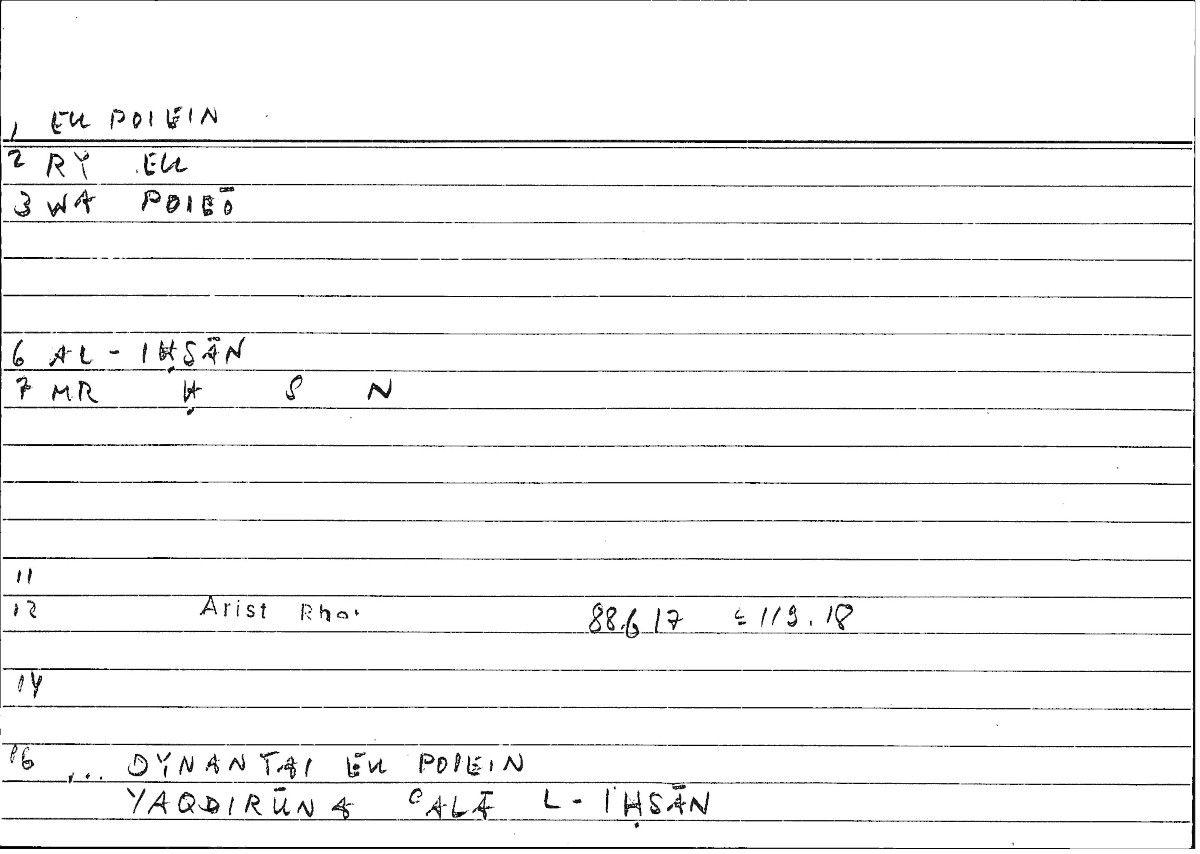 1 EU POIEIN
2 RY EU
3 WA POIEŌ
6 AL - IḤSĀN
7 MR Ḥ S N
11
12 Arist Rho. 88.6 17 = 119.18
14
16 ... DYNANTAI EU POIEIN
YAQDIRŪNA ʿALĀ L - IḤSĀN